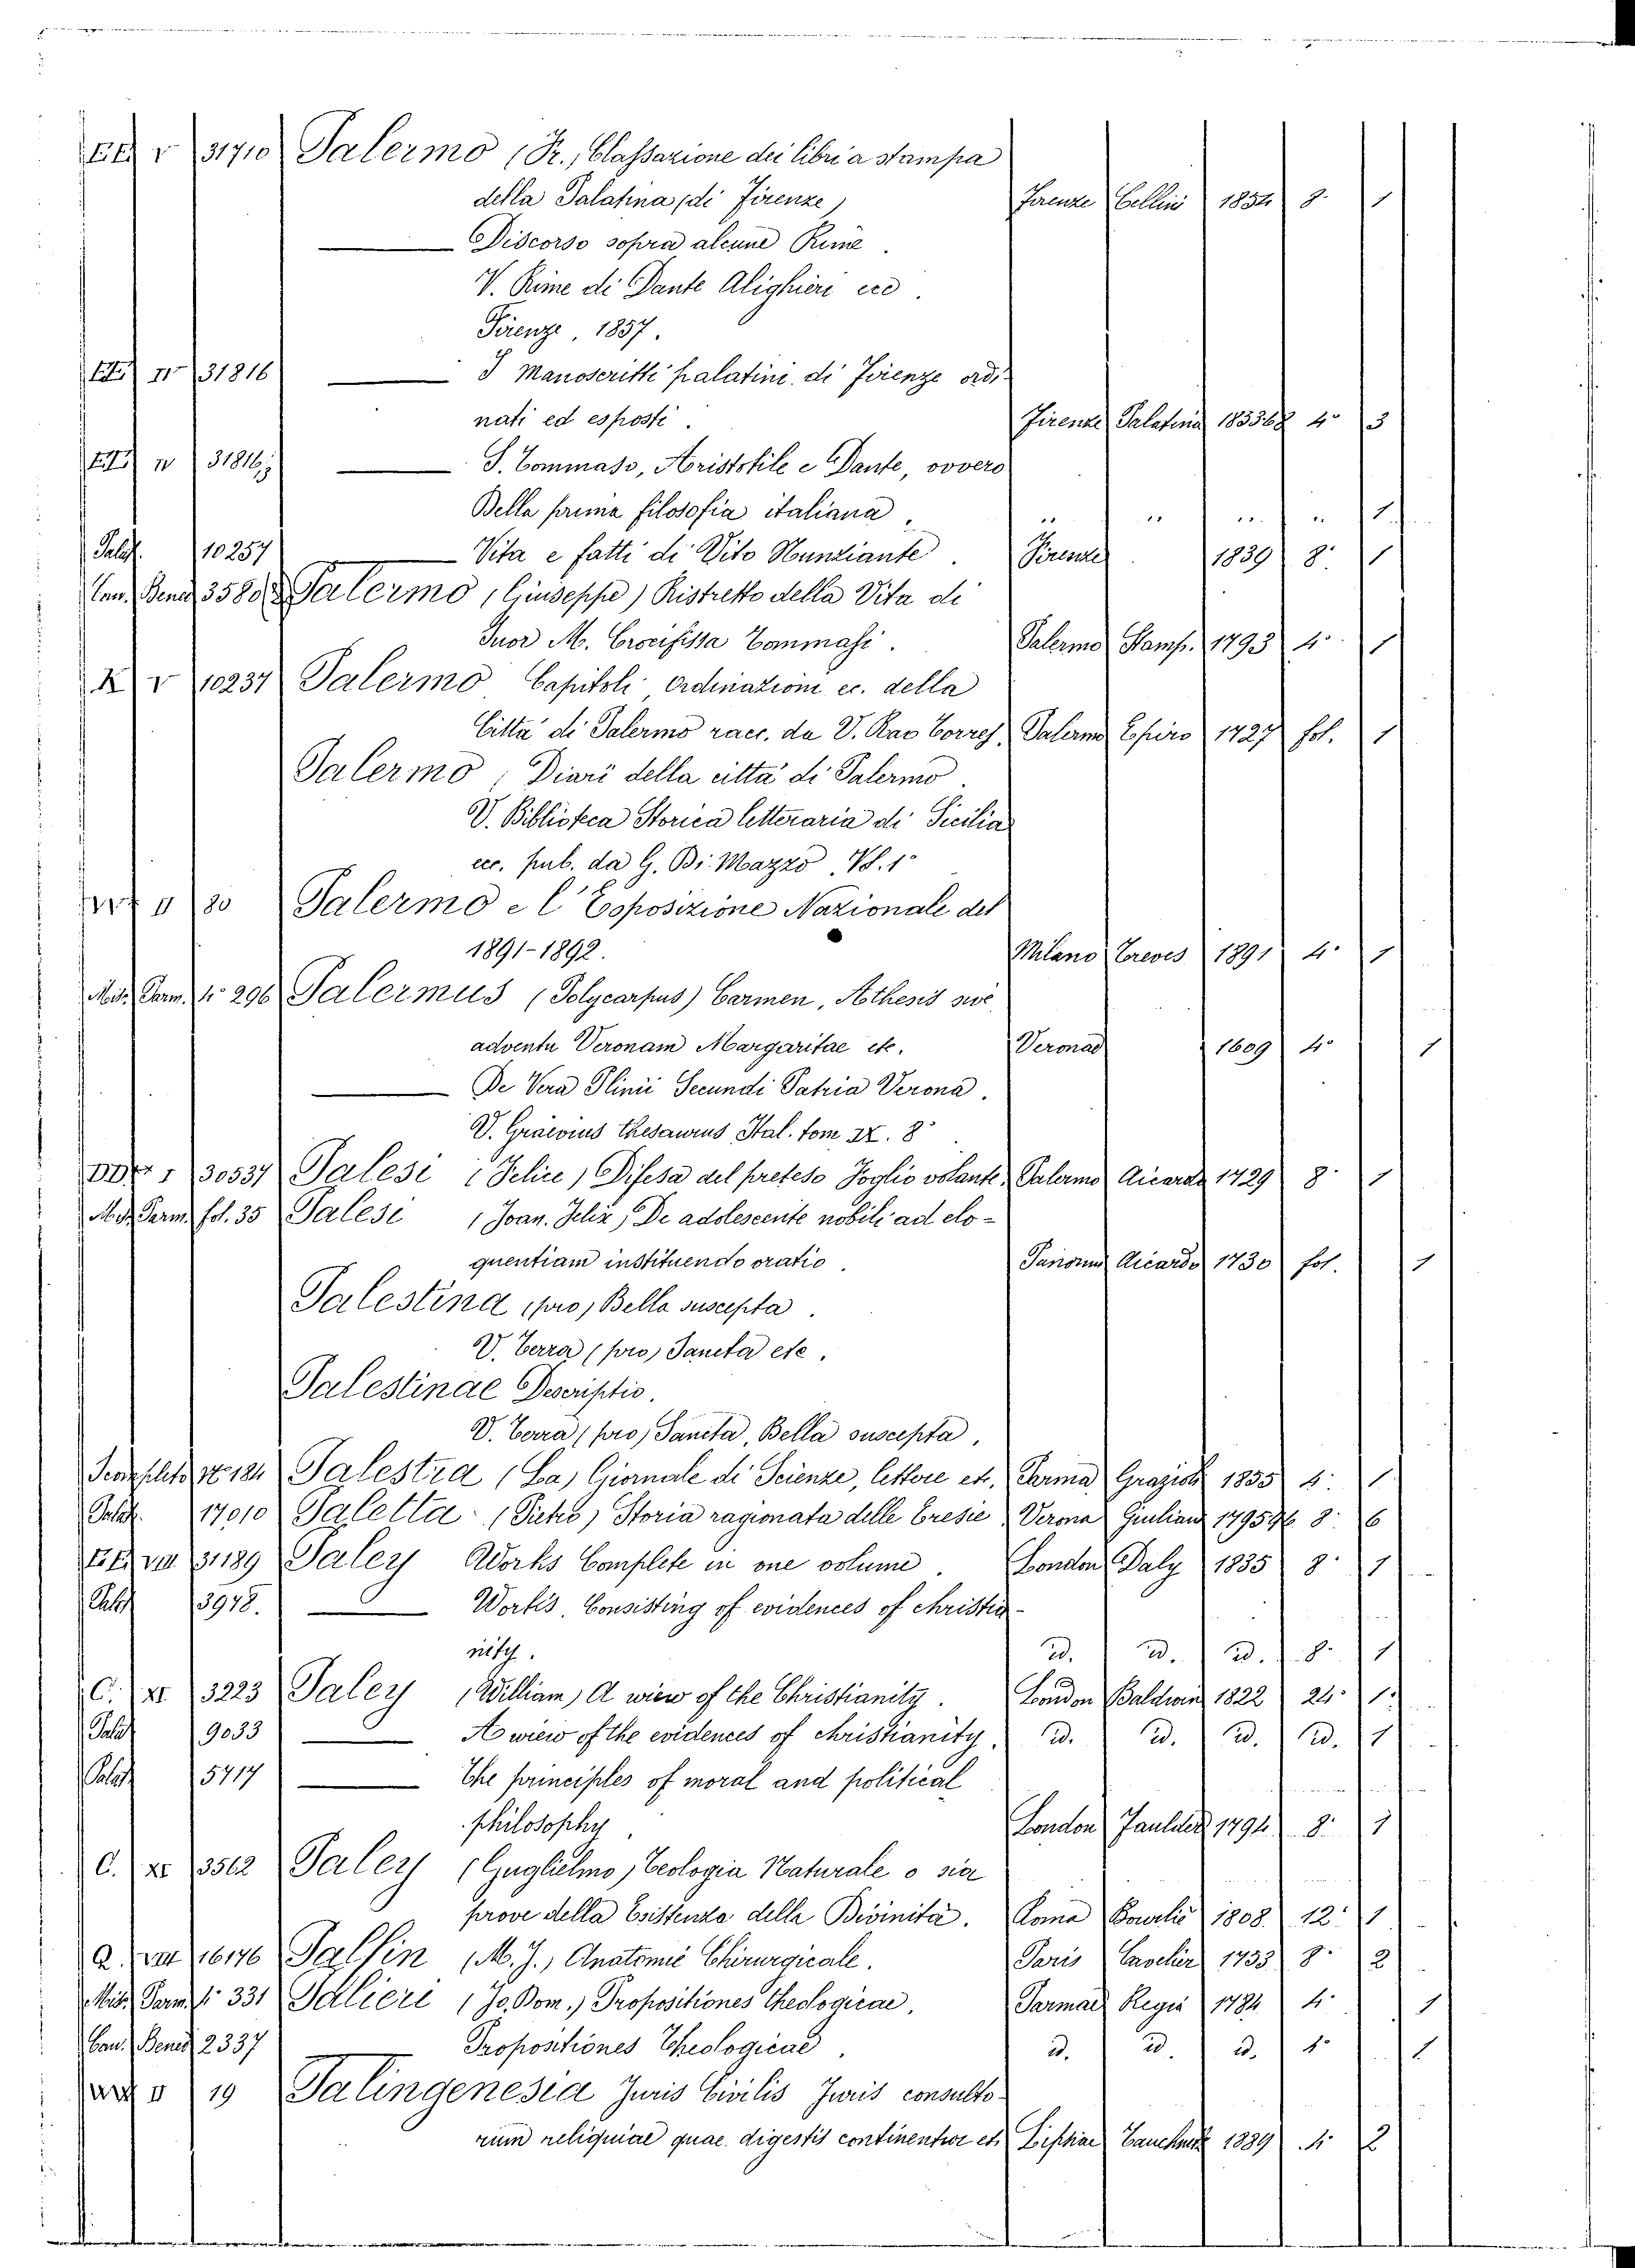 EE V 31710 Palermo (Fr.) Classazione dei libri a stampa
della Palatina (di Firenze) Firenze Cellini 1854 8° 1
— Discorso sopra alcune Rime.
V. Rime di Dante Alighieri ecc.
Firenze, 1857.
31816 — I Manoscritti palatini di Firenze ordi-
nati ed esposti. Firenze Palatina 1853 68 4° 3
31816 — S. Tommaso, Aristotile e Dante, ovvero
Della prima filosofia italiana. " " " " 1
Palat. 10257 — Vita e fatti di Vito Nunziante. Firenze 1839 8° 1
Con. Bened. 3580 Palermo (Giuseppe) Ristretto della Vita di
Suor M. Crocifissa Tommasi. Palermo Stamp. 1793 4° 1
K V 10237 Palermo Capitoli, Ordinazioni ec. della
Città di Palermo racc. da V. Rao Torres. Palermo Epiro 1727 fol. 1
Palermo, Diari della città di Palermo.
V. Biblioteca Storica letteraria di Sicilia
ecc. pub. da G. Di Mazzo, Vol. 1°
II 80 Palermo e l'Esposizione Nazionale del
1891-1892. Milano Treves 1891 4° 1
Misc. Parm. 4° 296 Palermus (Polycarpus) Carmen, Athesis sive
adventu Veronam Margaritae etc. Veronae 1609 4° 1
— De Vera Plinii Secundi Patria Verona.
V. Graevius Thesaurus Ital. tom IX. 8°
I 30537 Palesi (Felice) Difesa del preteso Foglio volante. Palermo Aicardo 1729 8° 1
Misc. Parm. fol. 35 Palesi (Joan. Felix) De adolescente nobili ad elo-
quentiam instituendo oratio. Panormi Aicardo 1730 fol. 1
Palestina (pro) Bella suscepta.
V. Terra (pro) Sancta etc.
Palestinae Descriptio.
V. Terra (pro) Sancta, Bella suscepta.
184 Palestra (La) Giornale di Scienze, lettere ec. Parma Grazioli 1835 4° 1
Palat. 17010 Paletta (Pietro) Storia ragionata delle Eresie Verona Giuliari 1795 96 8° 6
EE VIII 31189 Paley Works Complete in one volume. London Daly 1835 8° 1
Palat. 3978. — Works, Consisting of evidences of christia-
nity. id. id. id. 8° 1
C. XI 3223 Paley (William) A wiew of the Christianity. London Baldwin 1822 24° 1
Palat. 9033 — A wiew of the evidences of christianity. id. id. id. id. 1
Palat. 5717 — The principles of moral and political
philosophy. London Faulder 1794 8° 1
C. XI 3562 Paley (Guglielmo) Teologia Naturale o sia
prove della Esistenza della Divinità. Roma Bourlié 1808 12° 1
Q. VIII 16176 Palfin (M. J.) Anatomie Chirurgicale. Paris Cavelier 1733 8° 2
Misc. Parm. 4° 331 Palieri (Jo. Dom.) Propositiones theologicae. Parmae Regia 1784 4° 1
Con. Bened. 2337 Propositiones Theologicae. id. id. id. 4° 1
II 19 Palingenesia Juris Civilis Juris consulto-
rum reliquiae quae digestis continentur etc. Lipsiae Tauchnitz 1889 4° 2